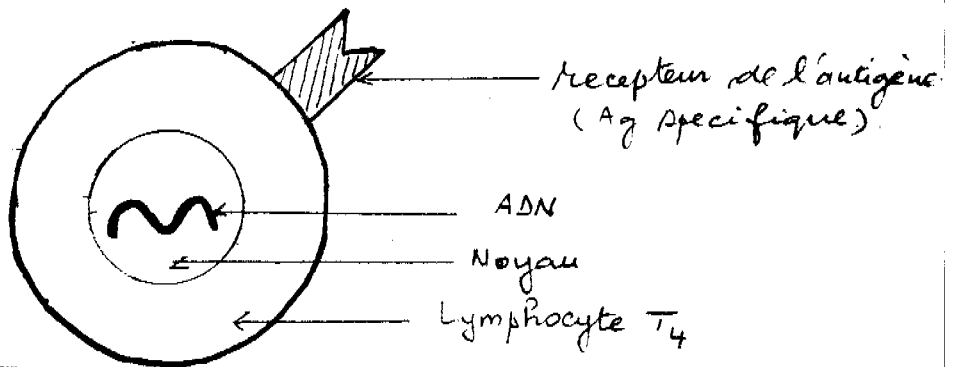 recepteur de l'antigène
(Ag specifique)
ADN
Noyau
Lymphocyte T4